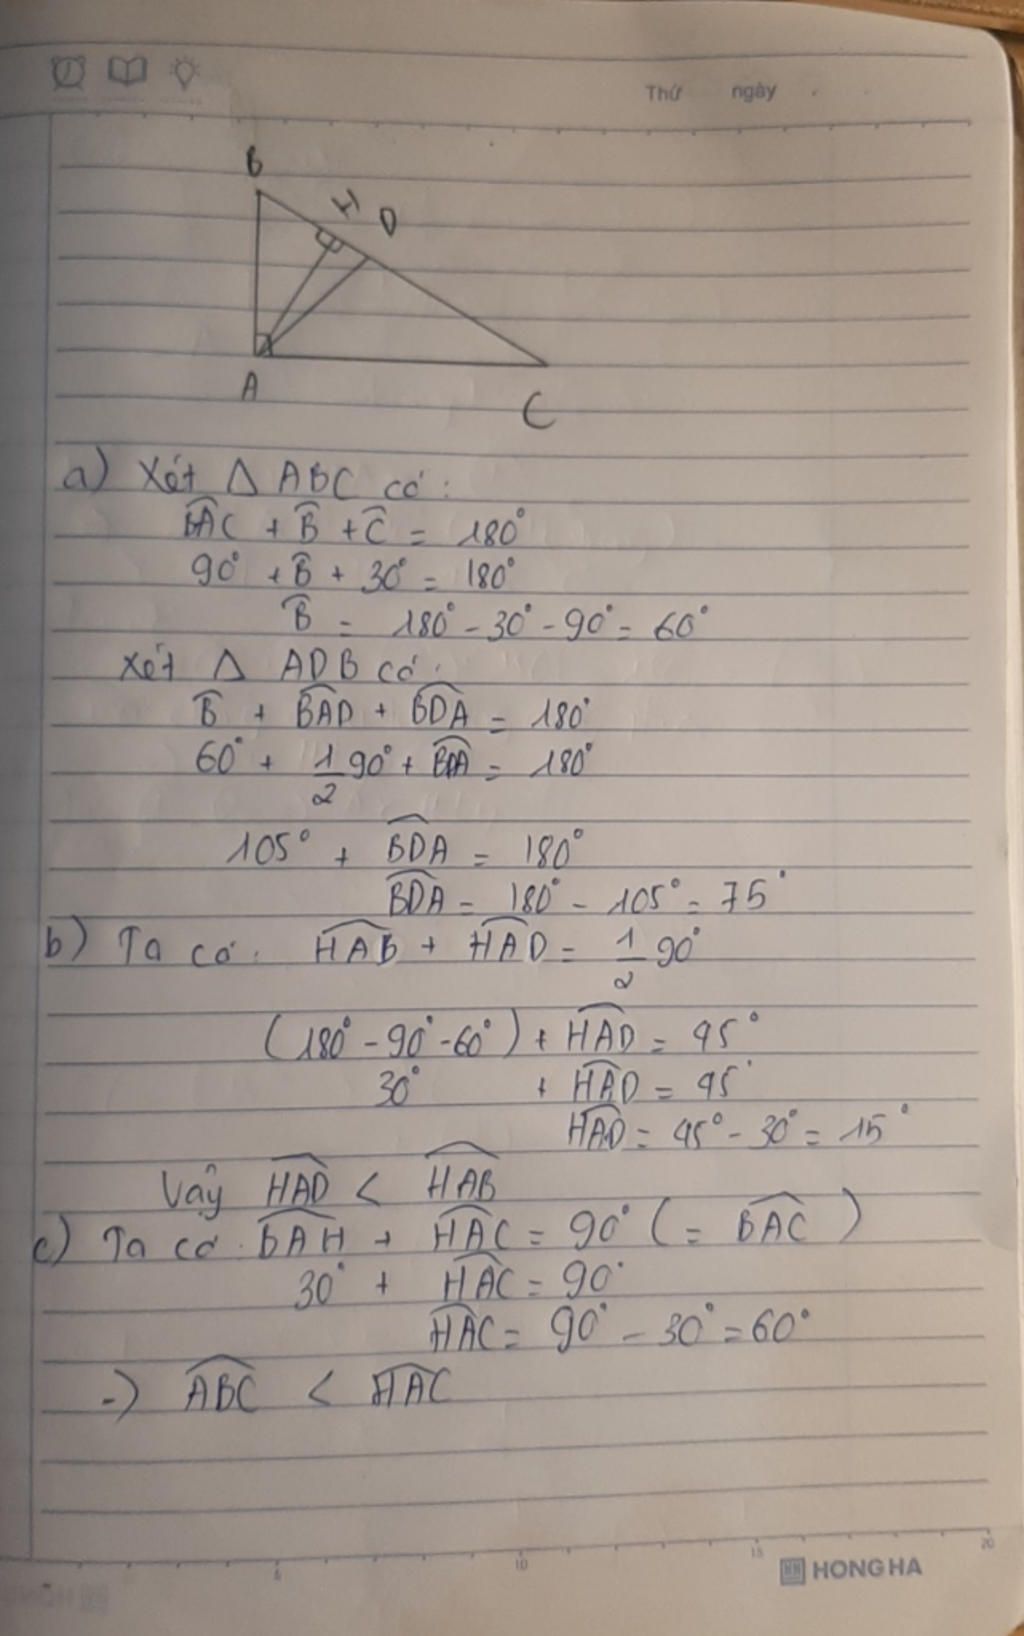 Thứ ngày
B
H D
A
C
a) Xét Δ ABC có:
BAC + B + C = 180°
90° + B + 30° = 180°
B = 180° - 30° - 90° = 60°
Xét Δ ADB có:
B + BAD + BDA = 180°
60° + 1/2 90° + BDA = 180°
105° + BDA = 180°
BDA = 180° - 105° = 75°
b) Ta có: HAB + HAD = 1/2 90°
(180° - 90° - 60°) + HAD = 45°
30° + HAD = 45°
HAD = 45° - 30° = 15°
Vậy HAD < HAB
c) Ta có: BAH + HAC = 90° (= BAC)
30° + HAC = 90°
HAC = 90° - 30° = 60°
-) ABC < HAC
5 10 15 20
HONG HA